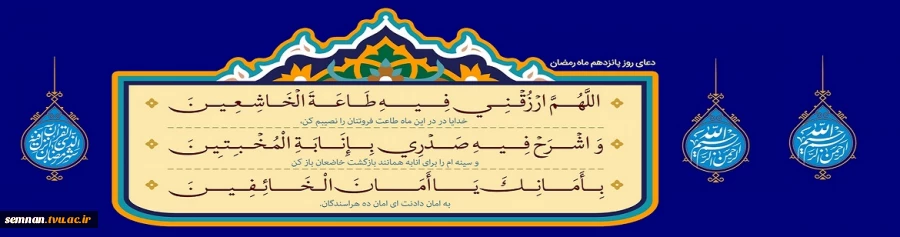 دعای روز پانزدهم ماه رمضان
اللَّهُمَّ ارْزُقْنِي فِيهِ طَاعَةَ الْخَاشِعِينَ
خدایا در در این ماه طاعت فروتنان را نصیبم کن.
وَ اشْرَحْ فِيهِ صَدْرِي بِإِنَابَةِ الْمُخْبِتِينَ
و سینه ام را برای انابه همانند بازگشت خاضعان باز کن
بِأَمَانِكَ يَا أَمَانَ الْخَائِفِينَ
به امان دادنت ای امان ده هراسندگان.
بسم الله الرحمن الرحیم
بسم الله الرحمن الرحیم
semnan.tvu.ac.ir